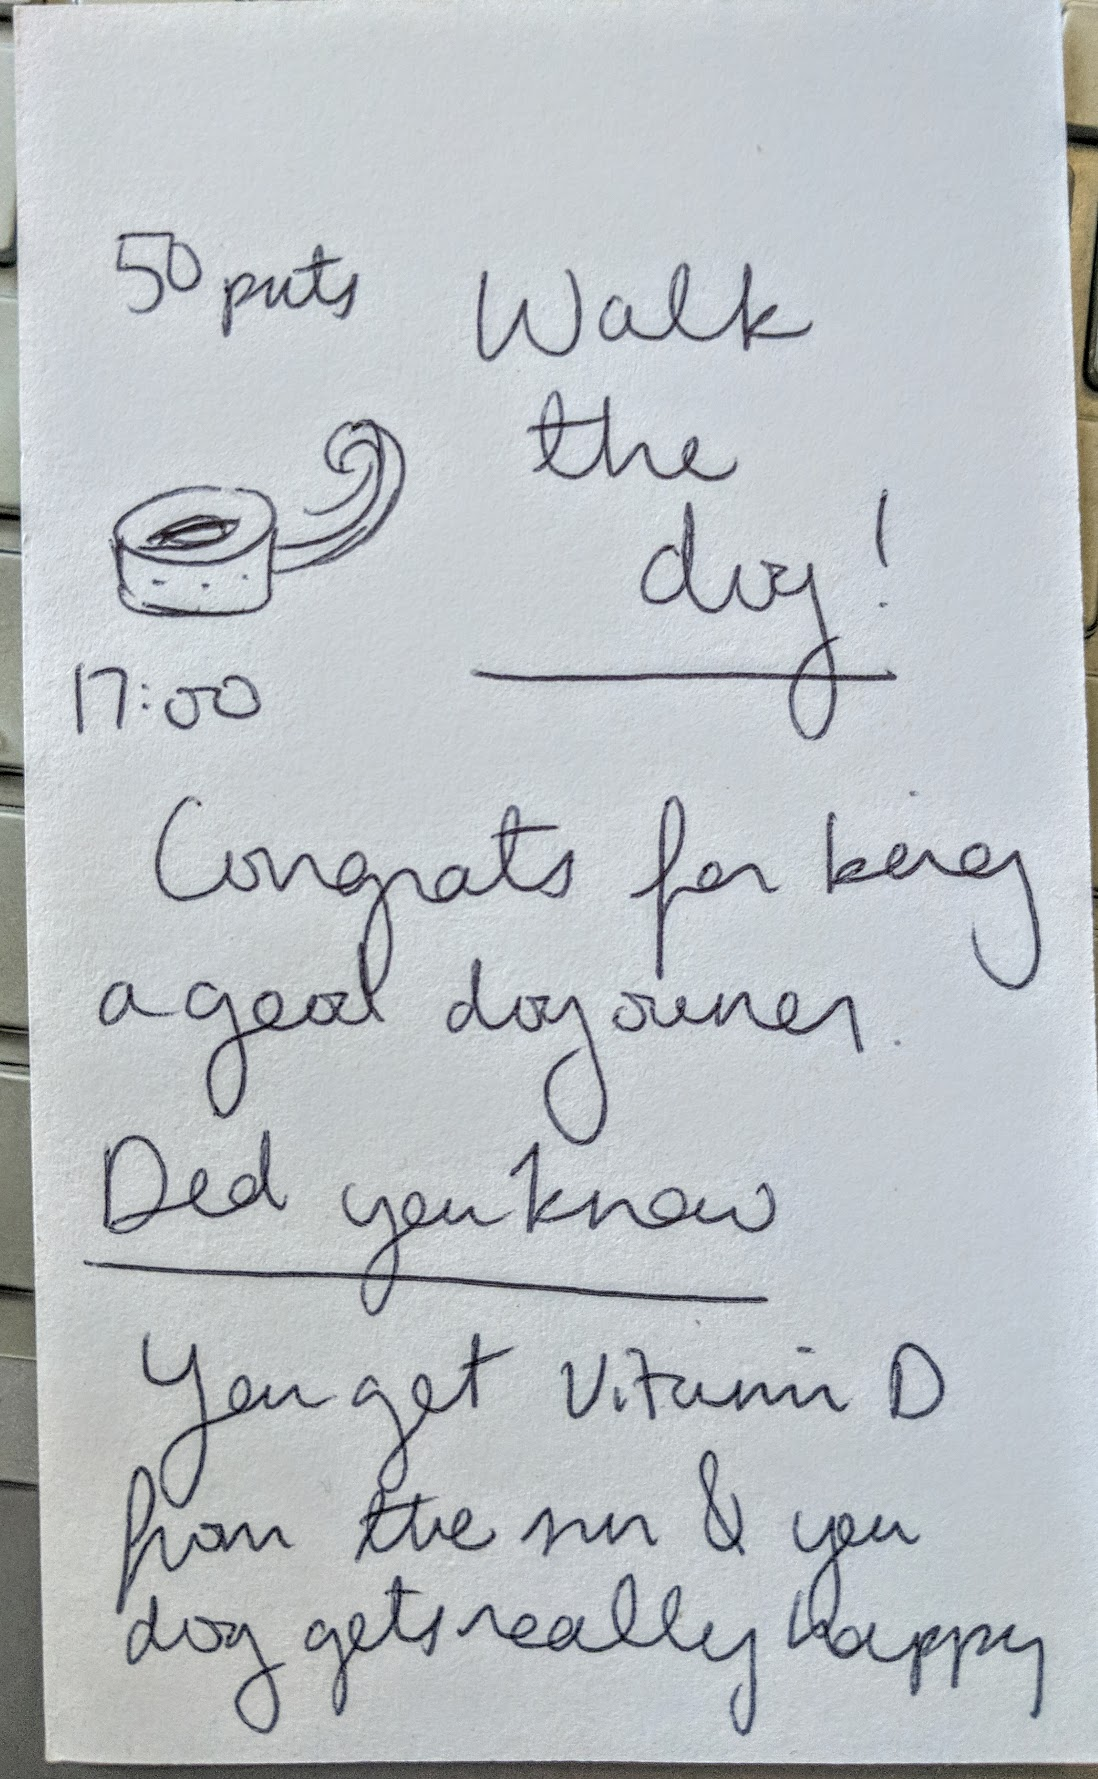 50 pnts
Walk
the
dog!
17:00
Congrats for being
a good dog owner.
Did you know
You get Vitamin D
from the sun & you
dog gets really happy